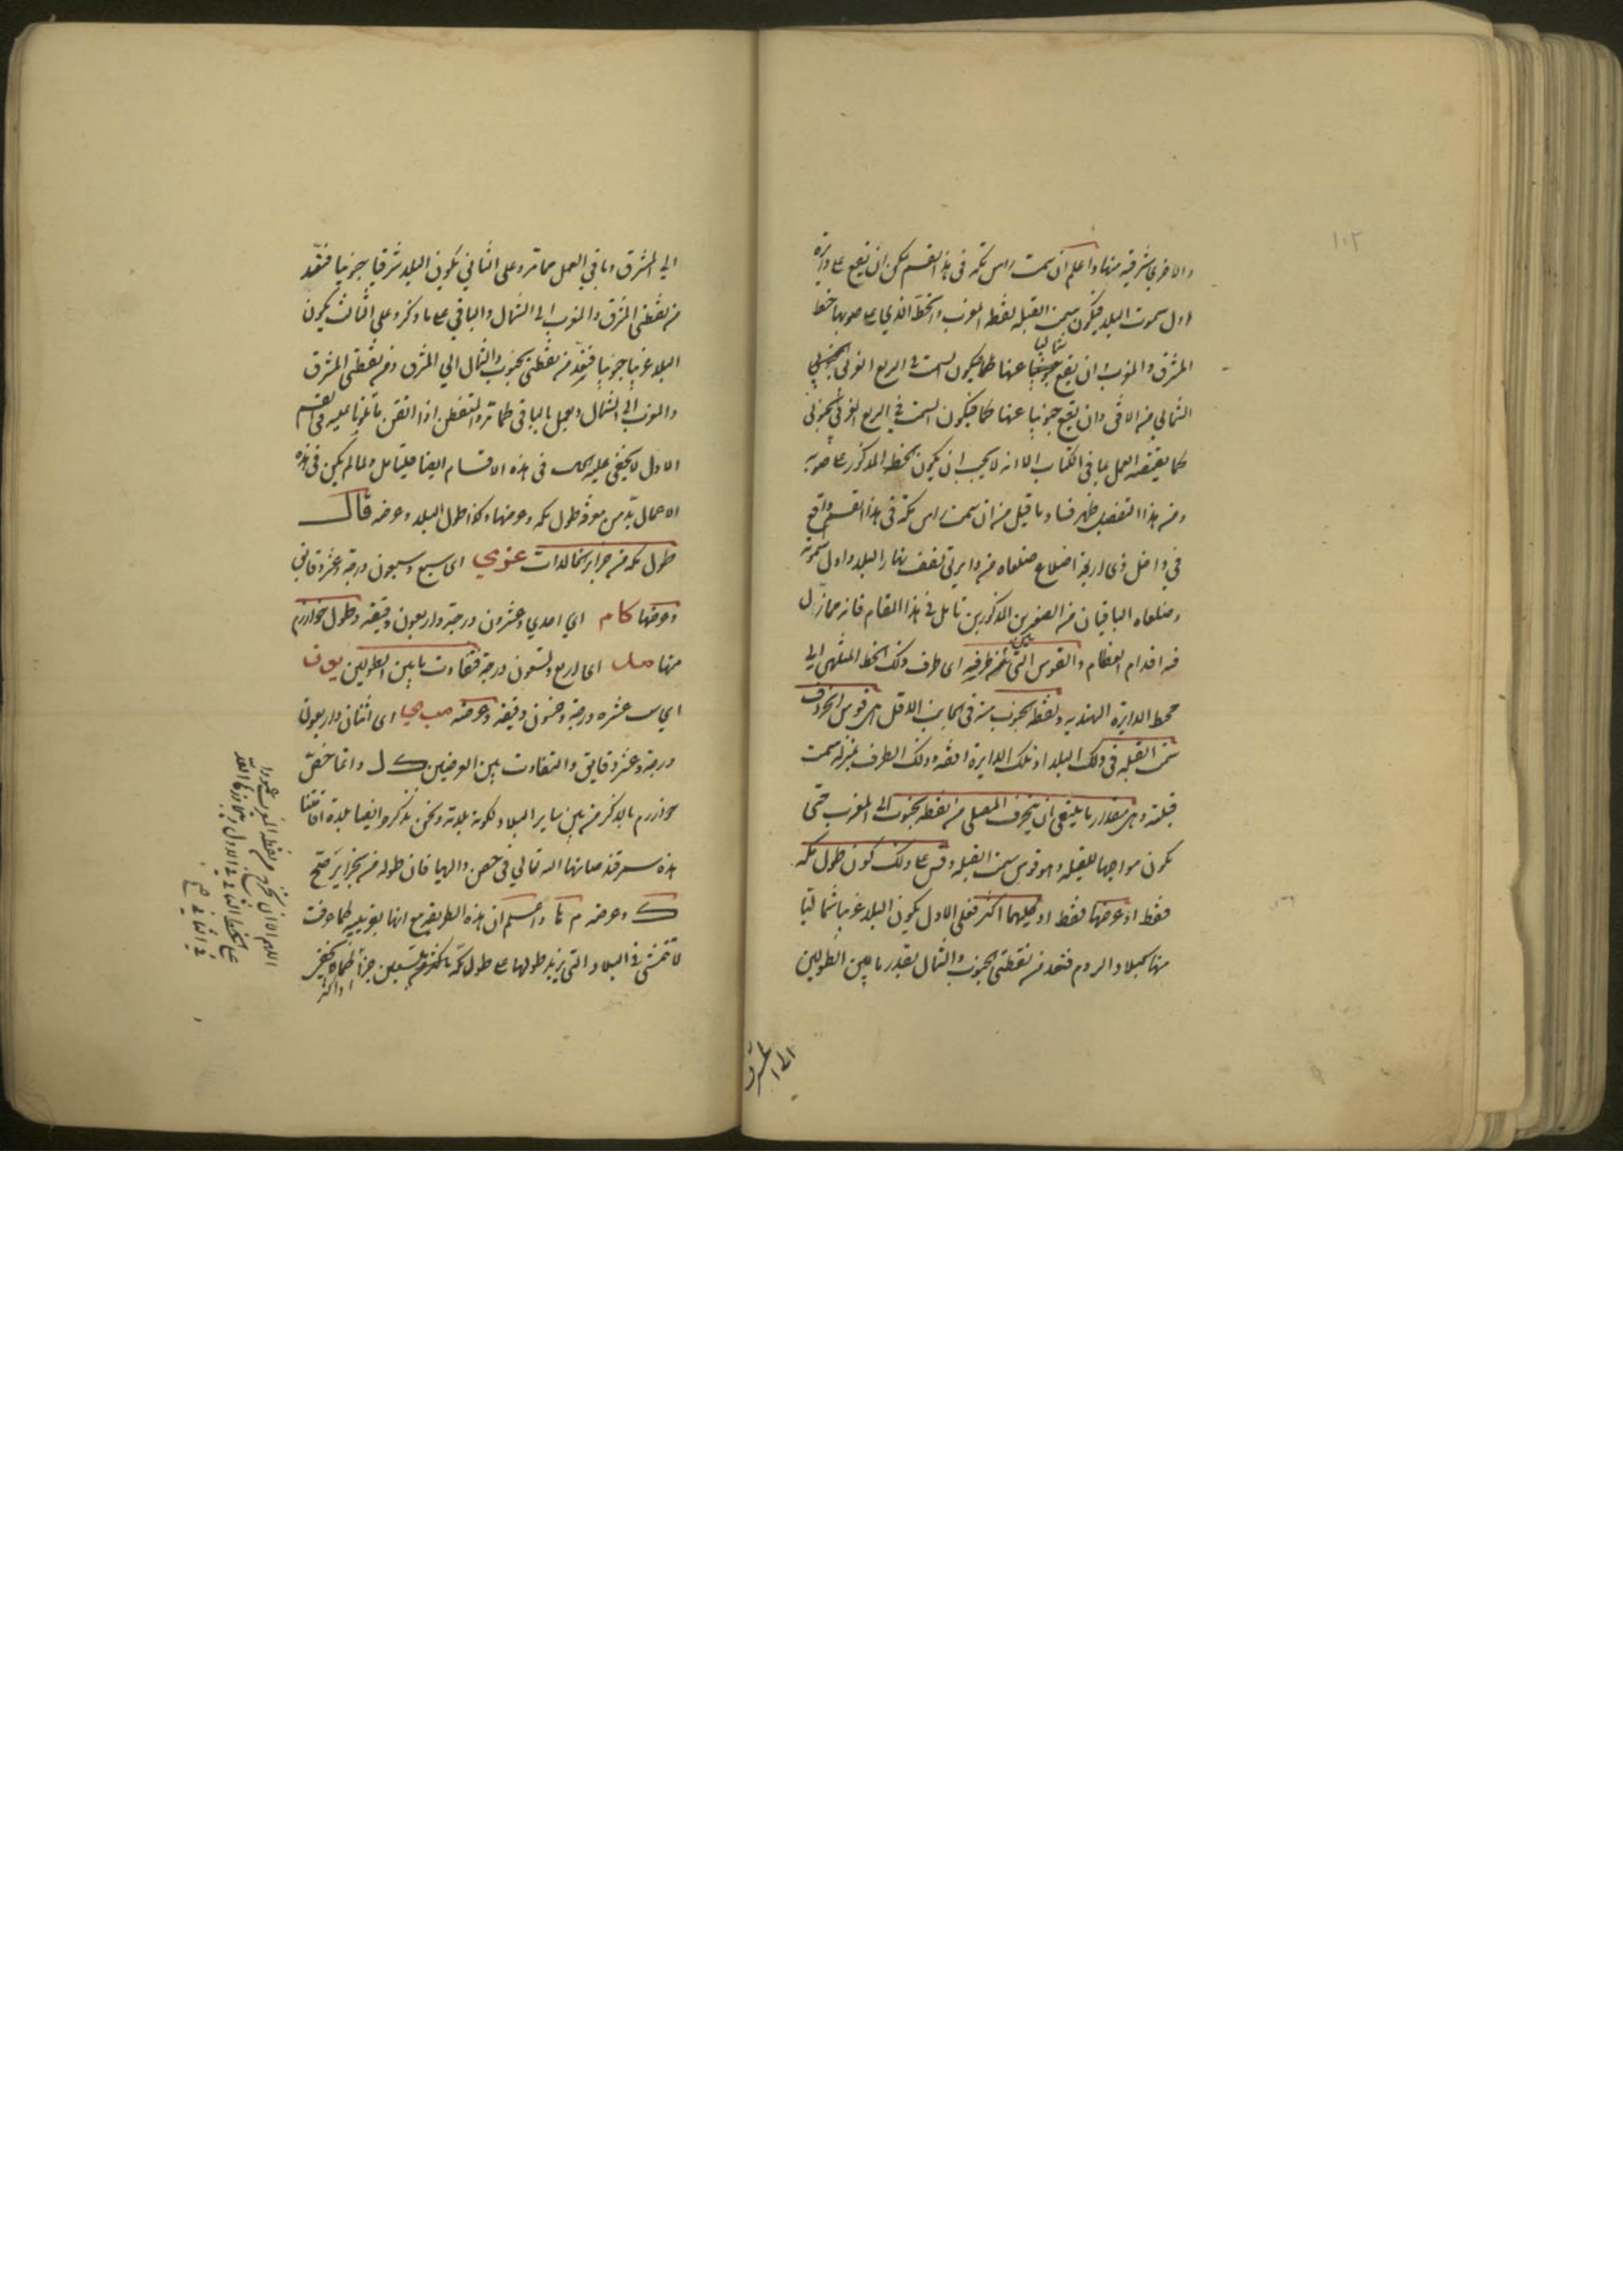 ١٠٢
والاخري شرقية منها واعلم ان سمت راس مكة فى هذا القسم يمكن ان يقع على دايرة
اول سموت البلد فيكون سمت القبلة نقطة المغرب والخط الذي على صوبها خط
المشرق والمغرب وان يقع شماليا عنها كما فيكون السمت فى الربع الغربى
الشمالي من الافق وان يقع جنوبيا عنها كما فيكون السمت فى الربع الغربى الجنوبى
كما يقتضيه العمل بما فى الكتاب الا انه لا يجب ان يكون الخط المذكور على صوبه
ومن هذا التفصيل ظهر فساد ما قيل من ان سمت راس مكة فى هذا القسم واقع
فى داخل ذى اربعة اضلاع ضلعاه من دايرتى نصف نهار البلد واول السموت
وضلعاه الباقيان من الصغيرين المذكورين تامل فى هذا المقام فانه مما زل
فيه اقدام العظام والقوس التى بين طرفيه اى طرف ذلك الخط المنتهى الى
محيط الدايرة الهندية ونقطة الجنوب منه فى الجانب الاقل هى قوس انحراف
سمت القبلة فى ذلك البلد اذ تلك الدايرة افقه وذلك الطرف بمنزلة سمت
قبلته وهى مقدار ما ينبغى ان ينحرف المصلى من نقطة الجنوب الى المغرب حتى
يكون مواجها للقبلة وهو قوس سمت القبلة وقس على ذلك كون طول مكة
فقط او عرضها فقط او كليهما اكثر فعلى الاول يكون البلد غربيا شماليا
منها كبلاد الروم فنعد من نقطتى الجنوب والشمال بقدر ما بين الطولين
الى المشرق
الى المشرق وباقي العمل مما مر وعلى الثاني يكون البلد شرقيا جنوبيا فنعد
من نقطتى المشرق والمغرب الى الشمال والباقي على ما ذكر وعلى الثالث يكون
البلد غربيا جنوبيا فنعد من نقطتى الجنوب والشمال الي المشرق ومن نقطتى المشرق
والمغرب الى الشمال ونعمل بالباقى كما مر والمتفطن اذا اتقن ما تلونا عليه فى القسم
الاول لا يخفى عليه الحال فى هذه الاقسام ايضا فليتامل ولما لم يكن فى هذه
الاعمال بد من معرفة طول مكة وعرضها وكذا طول البلد وعرضه قال
طول مكة من جزاير الخالدات عزى اى سبع وسبعون درجة وعشر دقايق
وعرضها كام اي احدي وعشرون درجة واربعون دقيقة وطول خوارزم
منها صد اى اربع وتسعون درجة فتفاوت ما بين الطولين يون
اي ست عشرة درجة وخمسون دقيقة وعرضه مب ي اى اثنتان واربعون
درجة وعشر دقايق والتفاوت بين العرضين ك ل وانما خص
خوارزم بالذكر من بين ساير البلاد لكونه بلدته ونحن نذكر ايضا بلدة اقامتنا
هذه سمرقند صانها الله تعالي فى حصن والهيا فان طوله من الجزاير صح
ك وعرضه م ما واعلم ان هذه الطريقة مع انها تقريبية كما عرفت
لا تتمشى فى البلاد التى يزيد طولها على طول مكة باكثر من تسعين جزا
او اكثر
اللهم الا ان يخرج من نقطة المغرب عمودا
على الخط الثانى فى الاول
فى الثانى صح